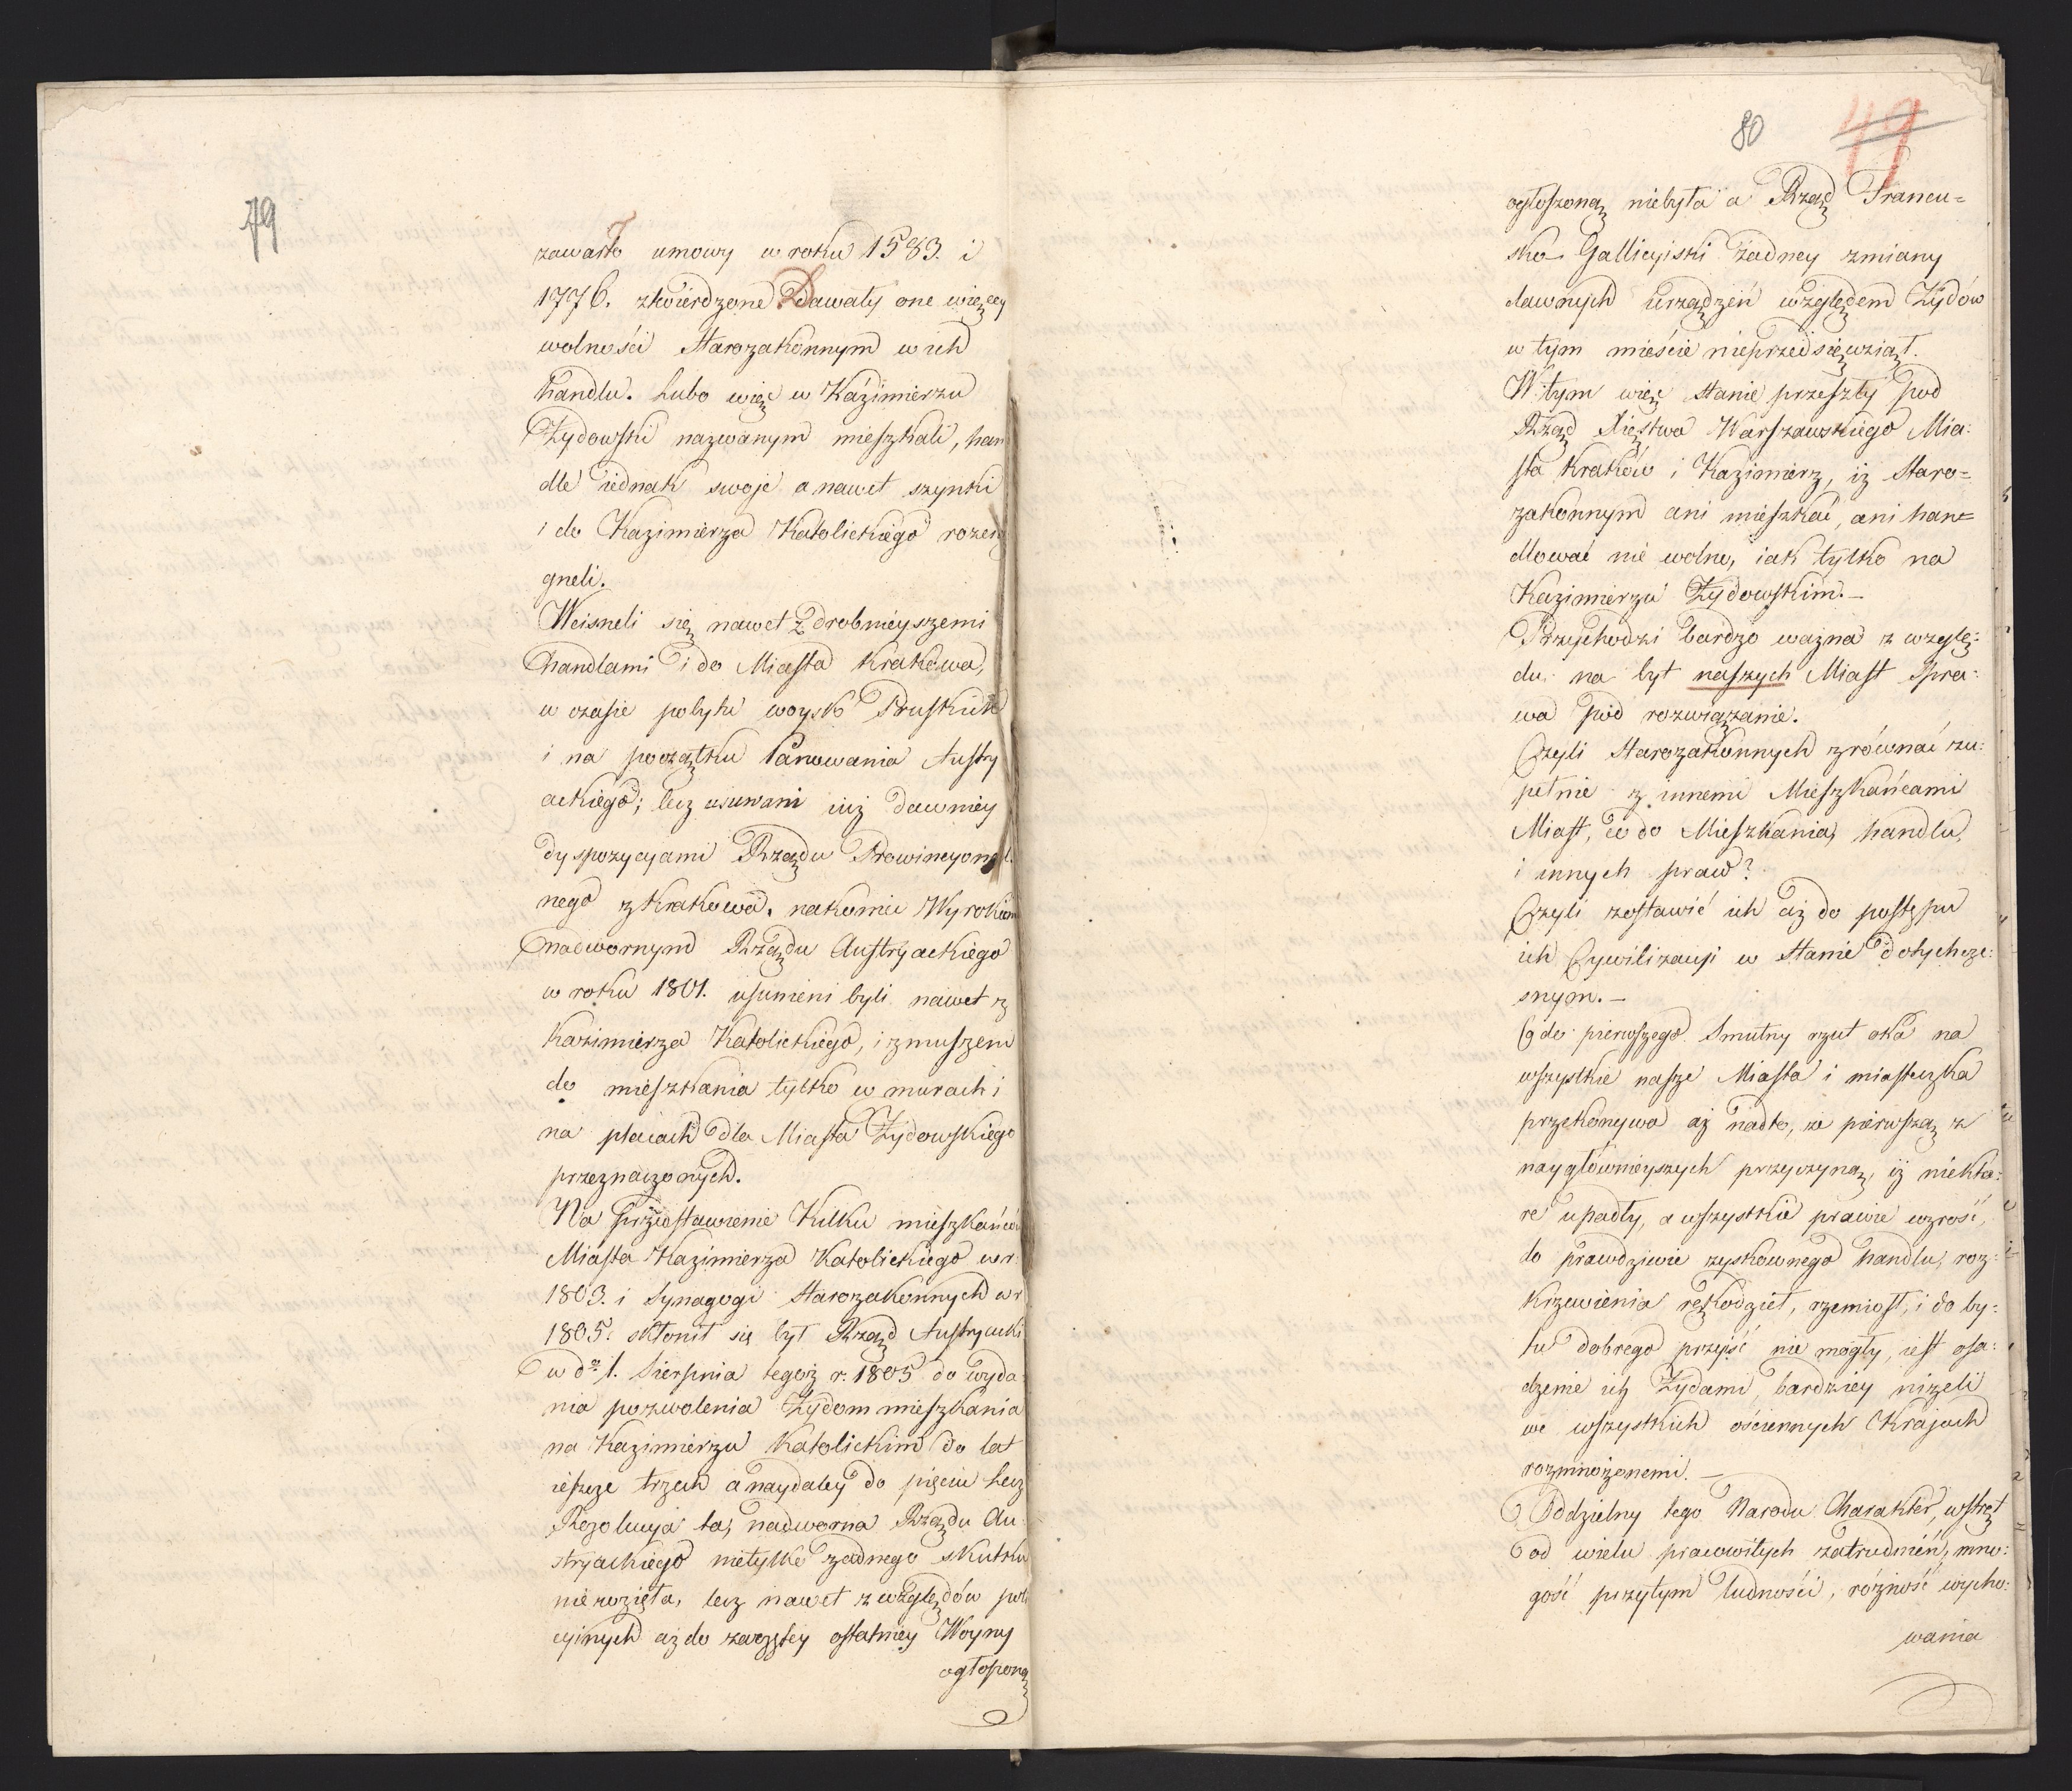 79
zawarto umowy w roku 1583. i
1776. ztwierdzone Dawały one więcey
wolności Starozakonnym w ich
handlu. Lubo więc w Kázimierzu
Zydowski nazwanym mieszkali, han
dle iednak swoje a nawet szynki
i do Kazimierza Katolickiego rozcią
gneli.
Wcisneli się nawet z drobnieyszemi
handlami i do Miasta Krakowa,
w czasie pobytu woysk Pruskich
i na początku Panowania Austry
ackiego; lecz usuwani iuż dawniey
dyspozycyami Rządu Prowincyonal
nego z Krakowa. nakoniec Wyrokiem
nadwornym Rządu Austryackiego
w roku 1801. usunieni byli nawet z
Kazimierza Katolickiego, i zmuszeni
do mieszkania tylko w murach i
na placach dla Miasta Zydowskiego
przeznaczonych.
Na przedstawienie Kilku mieszkańców
Miasta Kazimierza Katolickiego w r.
1803. i Synagogi Starozakonnych w r
1805. skłonił się był Rząd Austryacki
w d. 1. Sierpnia tegoż r. 1805 do wyda
nia pozwolenia Żydom mieszkania
na Kazimierzu Katolickim do lat
ieszcze trzech a naydaley do pięciu lecz
Rezolucya ta, nadworna Rządu Au
stryackiego nietylko żadnego skutku
nie wzięła, lecz nawet z względów poli
cyinych aż do zaczętey ostatniey Woyny
ogłoszoną
80 49
ogłoszoną niebyła a Rząd Francu=
sko Gallicyiski żadney zmiany
dawnych urządzeń względem Żydów
w tym mieście nieprzedsięwziął.
W tym więc stanie przeszły pod
Rząd Xięstwa Warszawskiego Mia:
sta Kraków i Kazimierz, iż Staro=
zakonnym ani mieszkać, ani han=
dlować nie wolno, iak tylko na
Kazimierzu Żydowskim.—
Przychodzi bardzo ważna z wzglę:
du na byt naszych Miast Spra:
wa pod rozwiązanie.
Czyli Starozakonnych zrównać zu:
pełnie z innemi Mieszkańcami
Miast, co do Mieszkania, handlu,
i innych praw?
Czyli zostawić ich aż do postępu
ich Cywilizacyi w Stanie dotychcza:
snym.—
Co do pierwszego. Smutny rzut oka na
wszystkie nasze Miasta i miasteczka
przekonywa aż nadto, że pierwszą z
naygłównieyszych przyczyną, iż niektó:
re upadły, a wszystkie prawie wzrość,
do prawdziwie zyskownego handlu, roz:
krzewienia rękodzieł, rzemiosł, i do by:
tu dobrego przyść nie mogły, iest osa:
dzenie ich Żydami, bardziey niżeli
we wszystkich ościennych Krajach
rozmnożonemi.—
Oddzielny tego Narodu Charakter, wstręt
od wielu pracowitych zatrudnień, mno:
gość przytym ludności, różność wycho:
wania